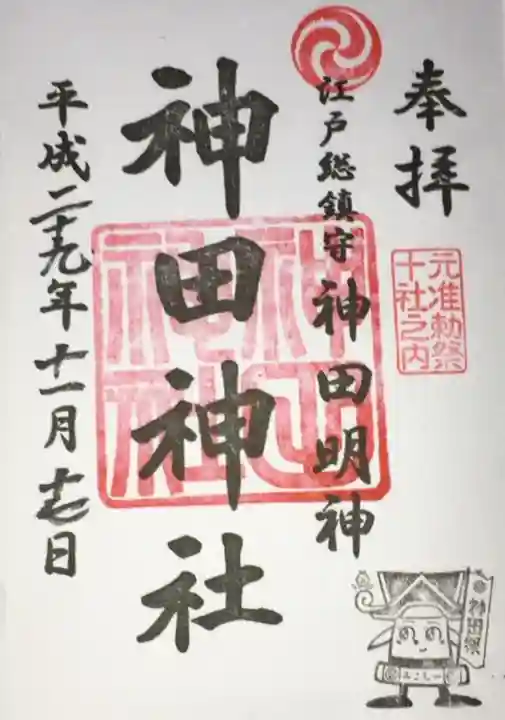 奉拝
元准勅祭
十社之内
江戸総鎮守 神田明神
神田神社
神田神社
平成二十九年十一月十七日
神田祭
みこしー